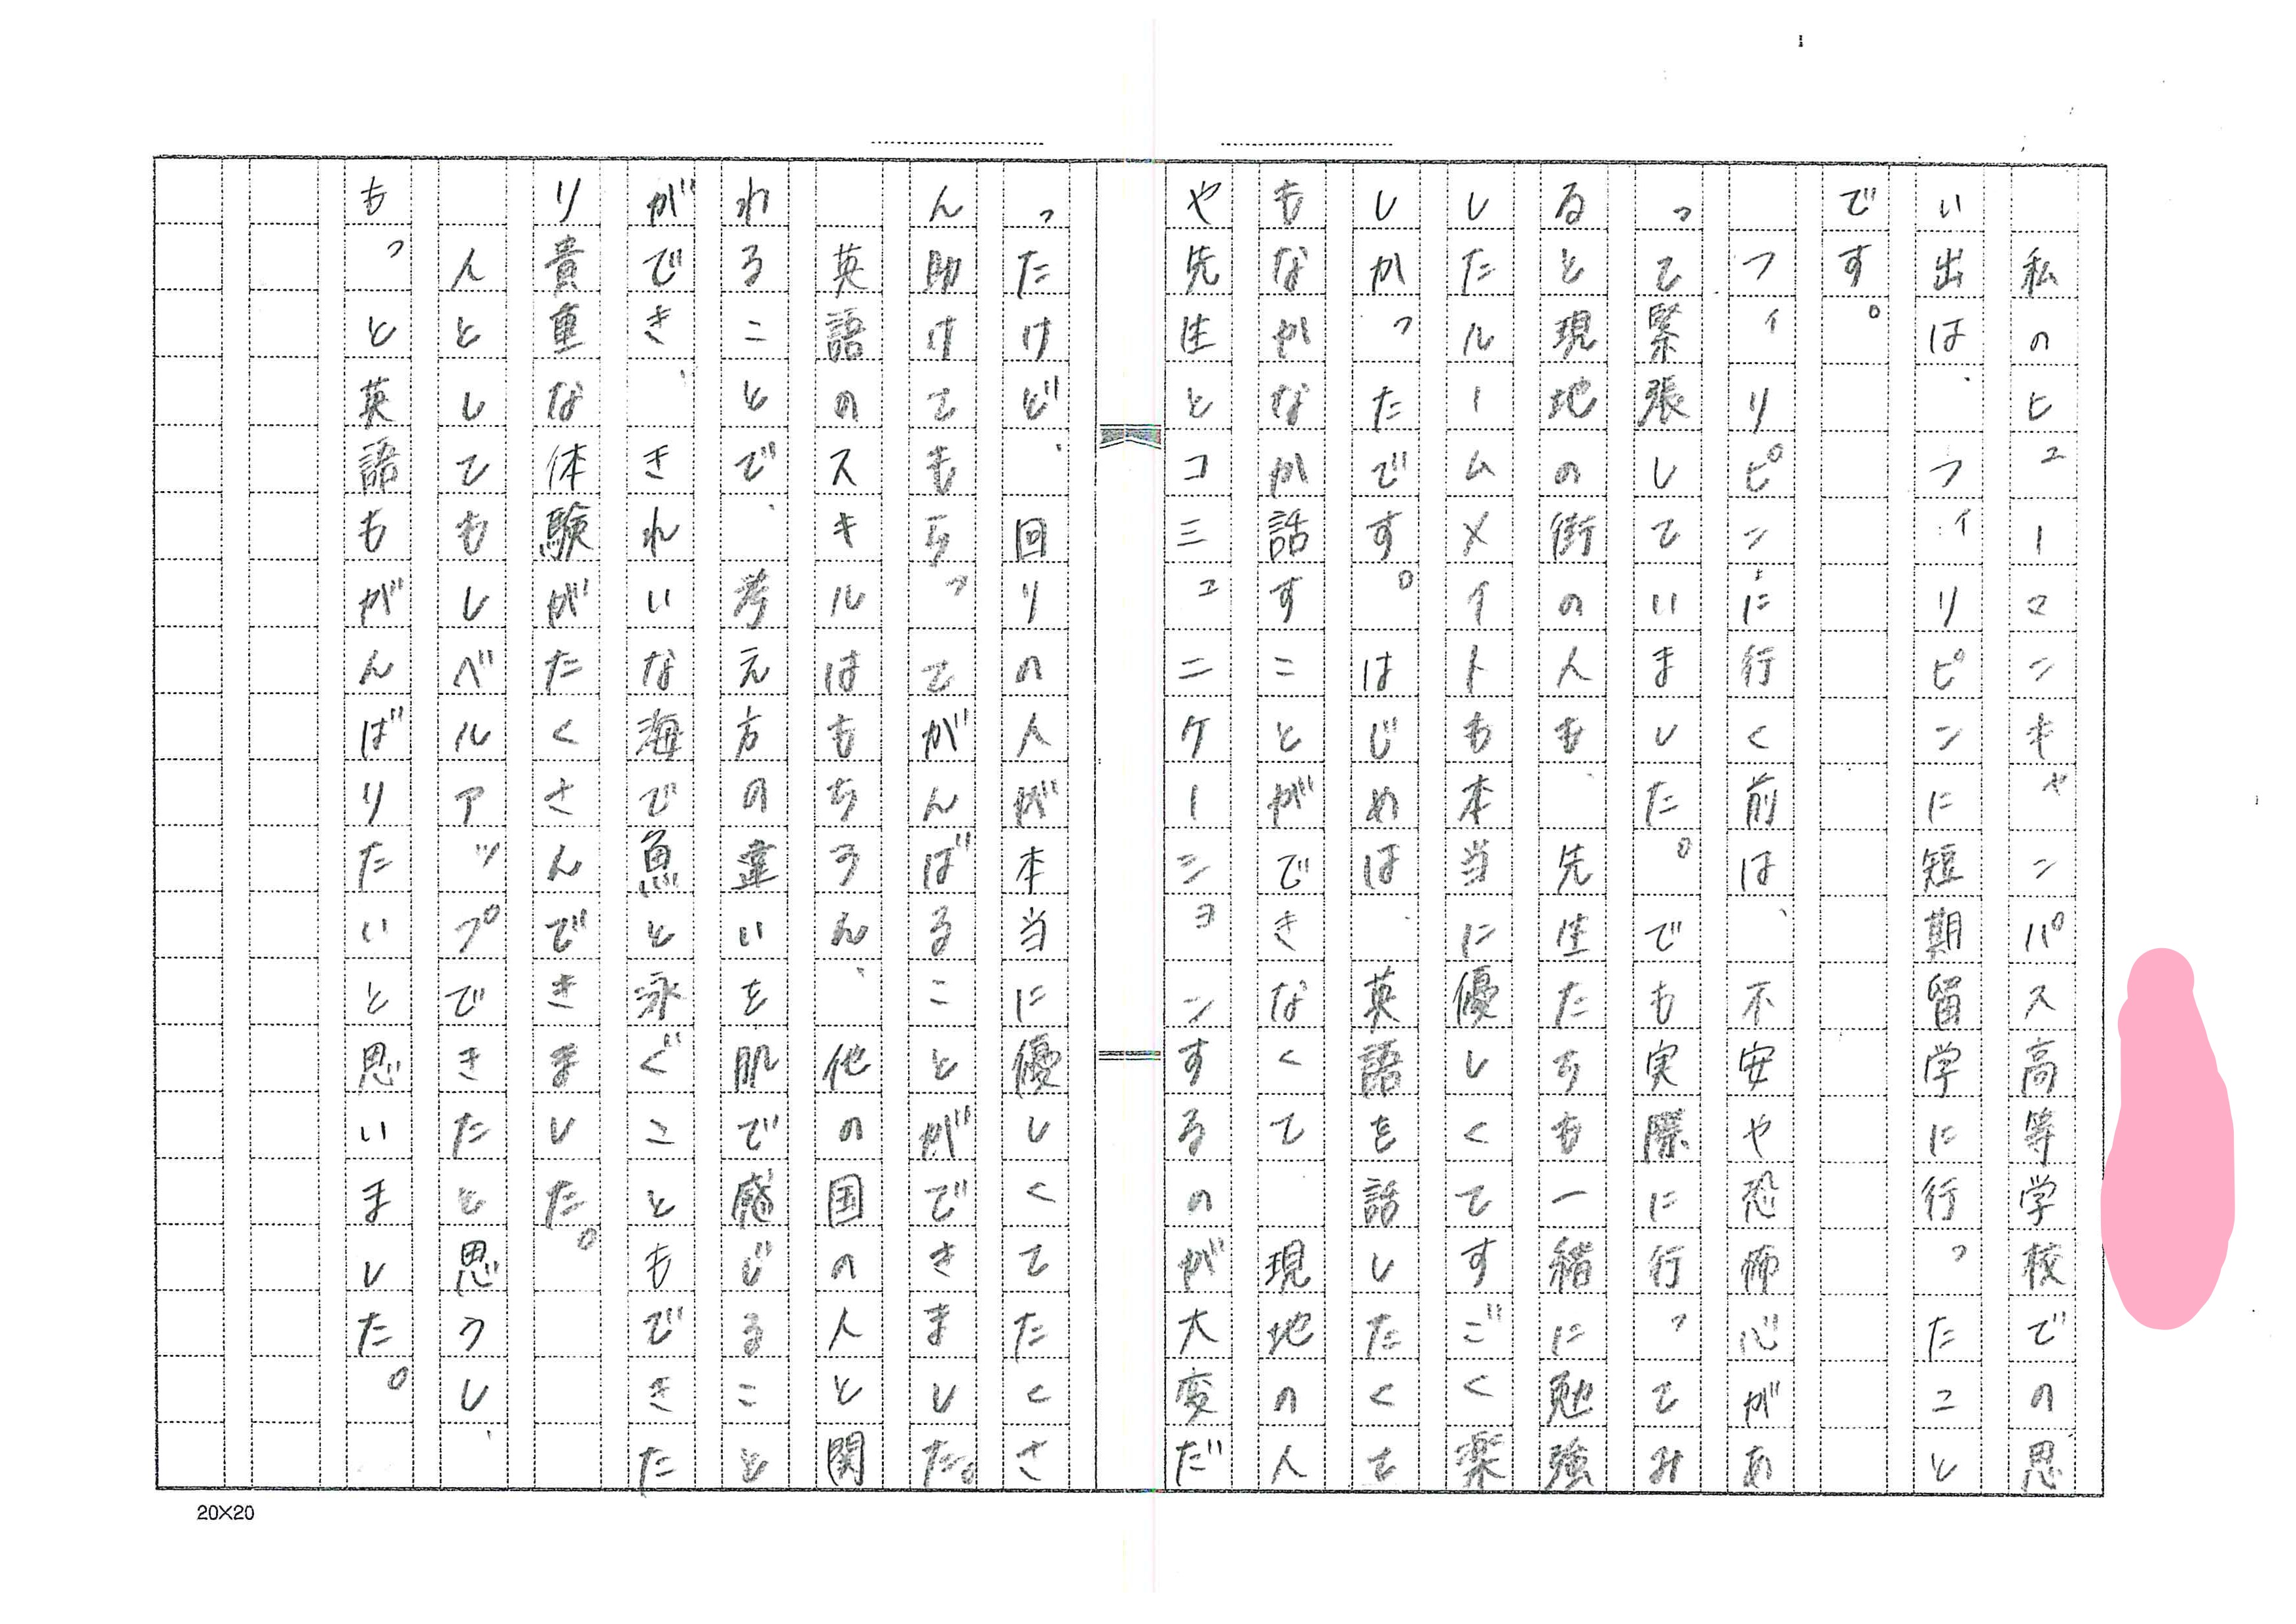 私のヒューマンキャンパス高等学校での思
い出は、フィリピンに短期留学に行ったこと
です。
フィリピンに行く前は、不安や恐怖心があ
って緊張していました。でも実際に行ってみ
ると現地の街の人も、先生たちも一緒に勉強
したルームメイトも本当に優しくてすごく楽
しかったです。はじめは、英語を話したくて
もなかなか話すことができなくて現地の人
や先生とコミュニケーションするのが大変だ
ったけど、回りの人が本当に優しくてたくさ
ん助けてもらってがんばることができました。
英語のスキルはもちろん、他の国の人と関
われることで、考え方の違いを肌で感じること
ができ、きれいな海で魚と泳ぐこともできた
り貴重な体験がたくさんできました。
人としてもレベルアップできたと思うし、
もっと英語もがんばりたいと思いました。
20×20